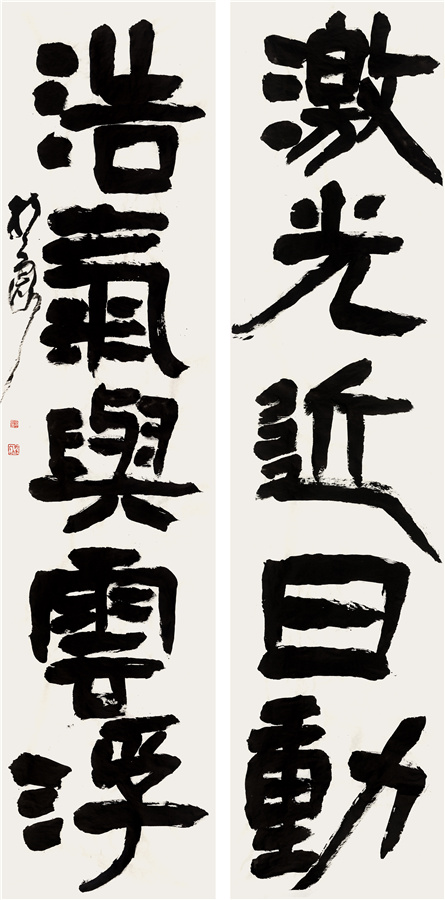 激光近日動
浩氣與雲浮